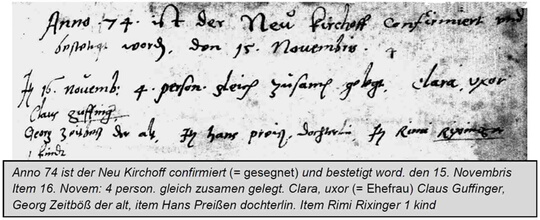 Anno 74. ist der Neu Kirchoff confirmiert und
bestetigt word. den 15. Novembris.
It 16. Novemb: 4. person. gleich zusamen gelegt. Clara, uxor
Claus Guffing
Georg Zeitbös der alt, It Hans Preiß. dochterlin It Rimi Rixinger
1 kindt
Anno 74 ist der Neu Kirchoff confirmiert (= gesegnet) und bestetigt word. den 15. Novembris
Item 16. Novem: 4 person. gleich zusamen gelegt. Clara, uxor (= Ehefrau) Claus Guffinger,
Georg Zeitböß der alt, item Hans Preißen dochterlin. Item Rimi Rixinger 1 kind